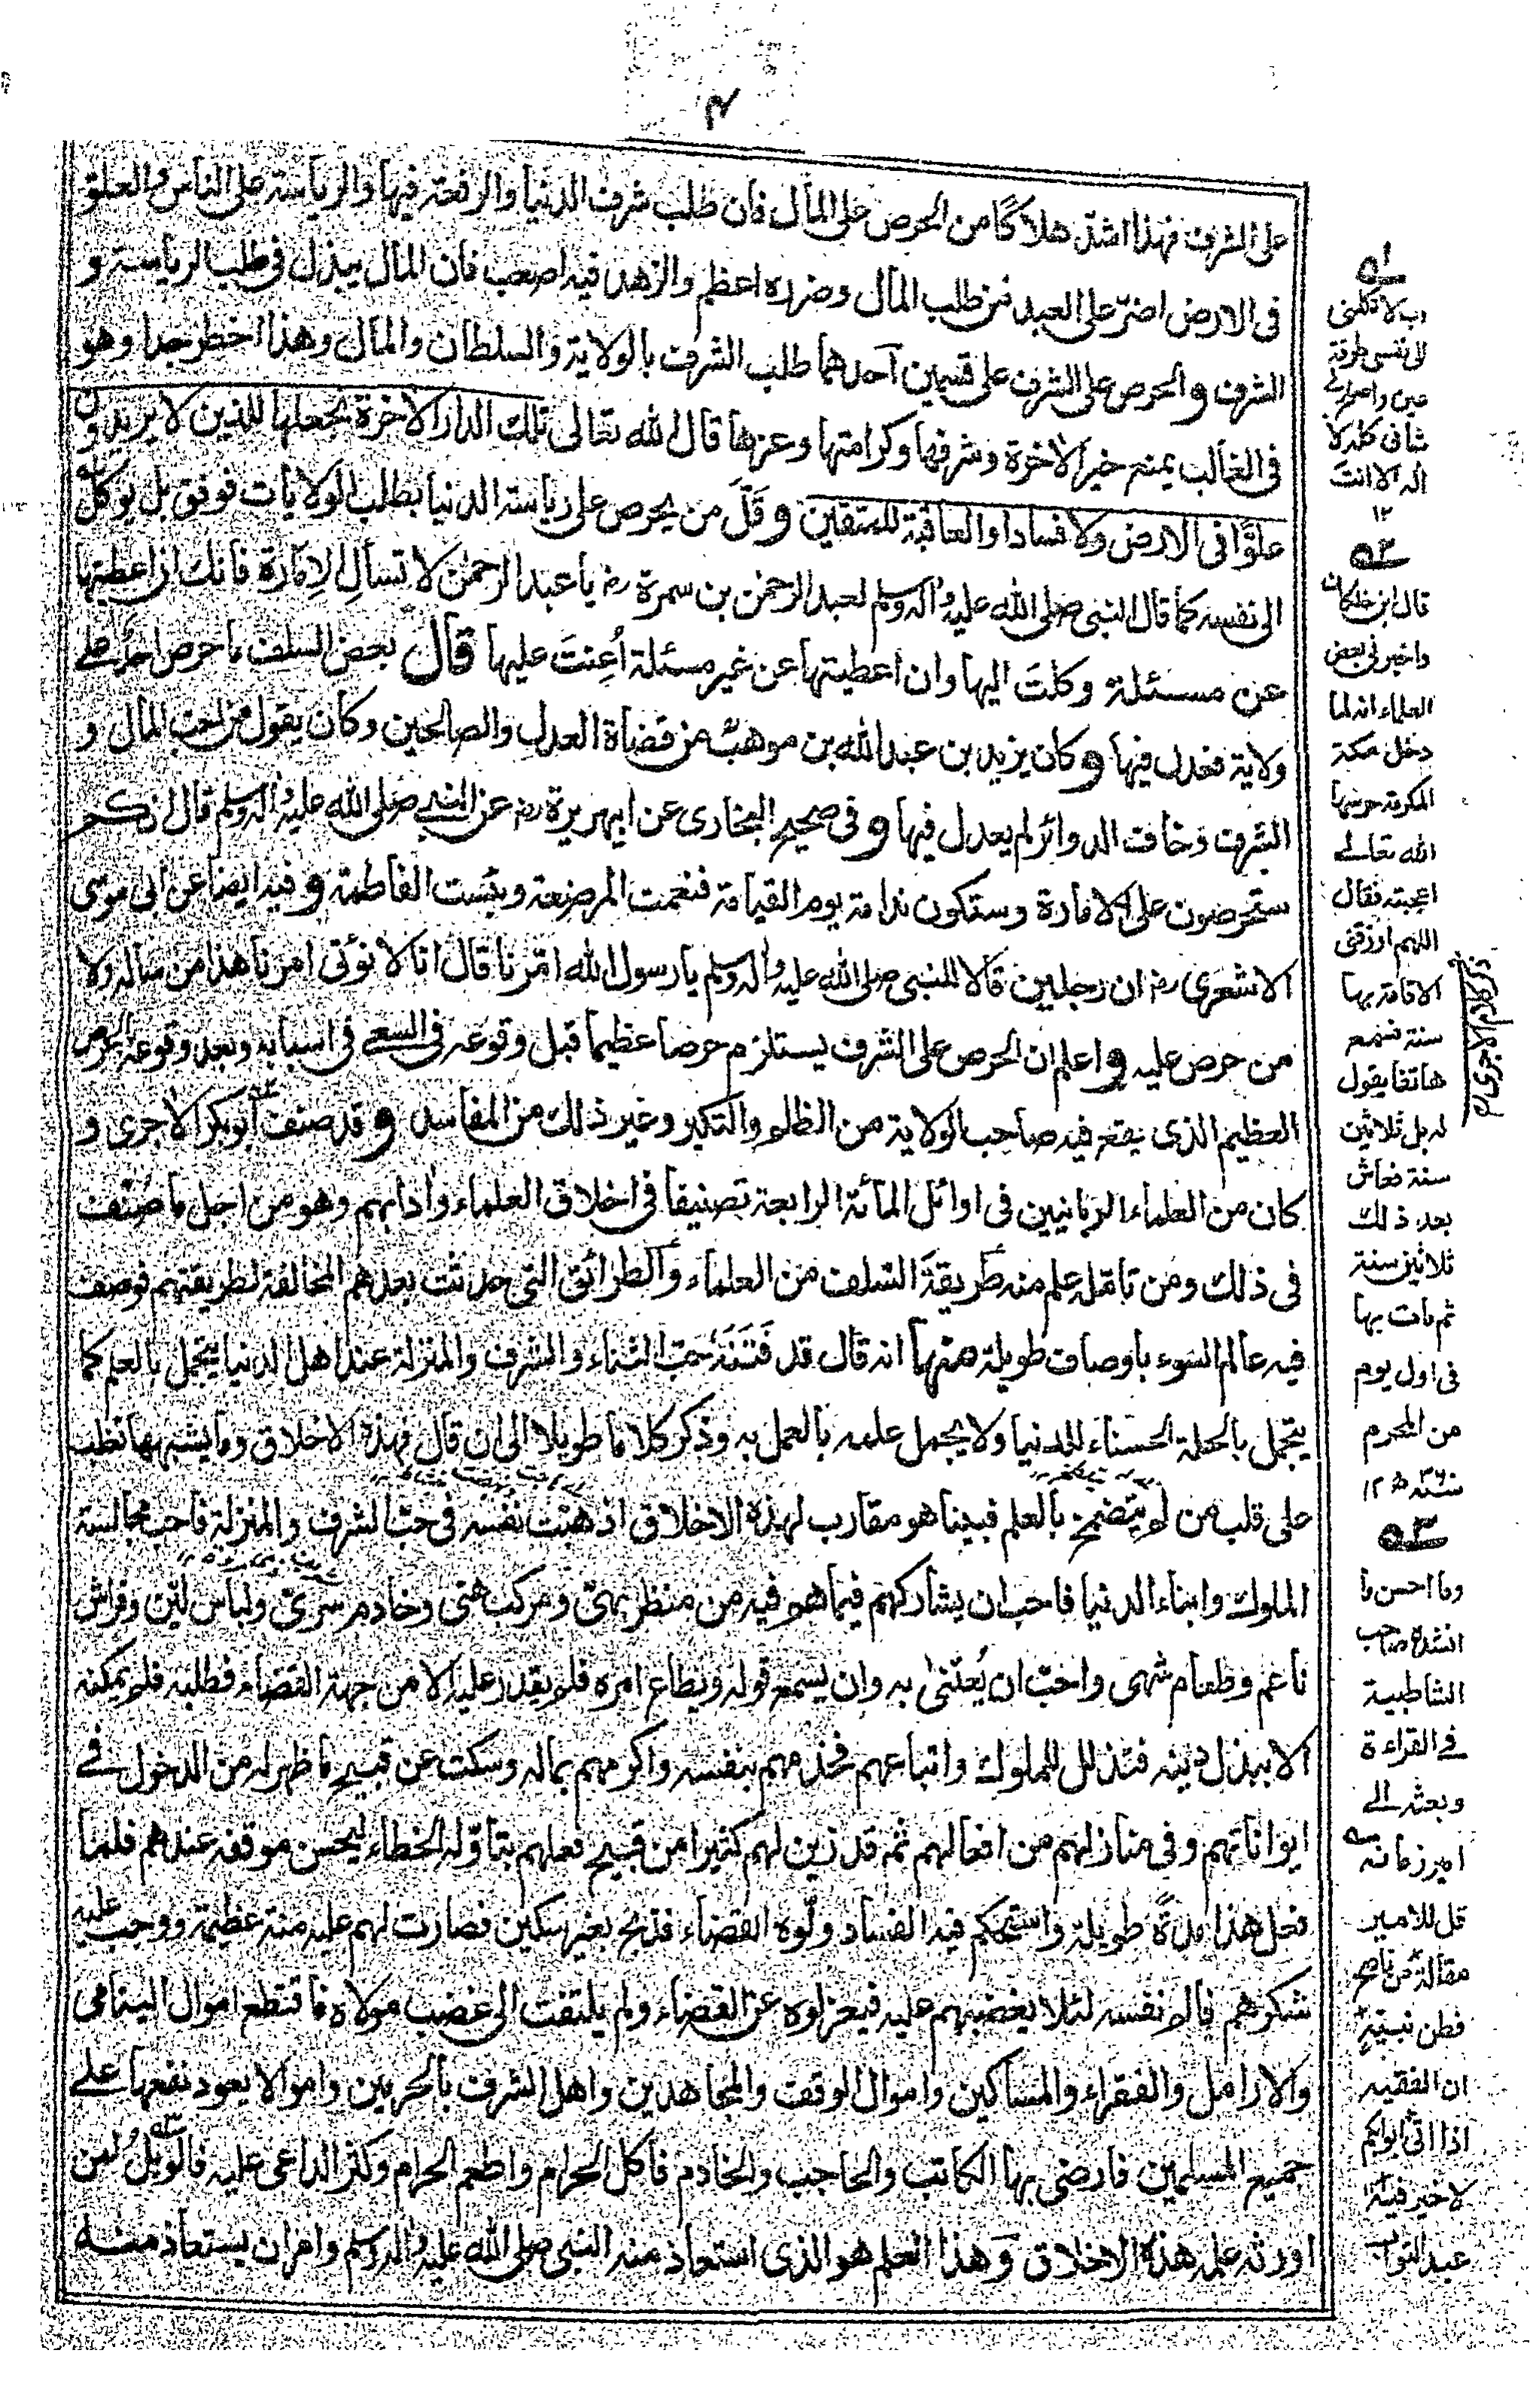 ٤
على الشرف فهذا اشد هلاكًا من الحرص على المال فان طلب شرف الدنيا والرفعة فيها والرياسة على الناس والعلو
فى الارض اضرّ على العبد من طلب المال وضرره اعظم والزهد فيه اصعب فان المال يبذل فى طلب الرياسة و
الشرف و الحرص على الشرف على قسمين آحدهما طلب الشرف بالولاية والسلطان والمال وهذا اخطر جدا وهو
فى الغالب يمنع خير الاخرة وشرفها وكرامتها وعزها قال الله تعالى تلك الدار الاخرة نجعلها للذين لا يريدون
علوًّا فى الارض ولا فسادا والعاقبة للمتقين و قَلَّ من يحرص على رياسة الدنيا بطلب الولايات فوفق بل يوكل
الى نفسه كما قال النبى صلى الله عليه واله وسلم لعبد الرحمن بن سمرة رض يا عبد الرحمن لا تسألِ الإمارة فانك ان اعطيتها
عن مسئلة وكلتَ اليها وان اعطيتها عن غير مسئلة اُعِنتَ عليها قال بعض السلف ما حرص احد على
ولاية فعدل فيها و كان يزيد بن عبد الله بن موهب من قضاة العدل والصالحين وكان يقول من احب المال و
الشرف وخاف الدوائر لم يعدل فيها و فى صحيح البخارى عن ابى هريرة رض عن النبى صلى الله عليه واله وسلم قال انكم
ستحرصون على الامارة وستكون ندامة يوم القيامة فنعمت المرضعة وبئست الفاطمة و فيه ايضا عن ابى موسى
الاشعرى رض ان رجلين قالا للنبى صلى الله عليه واله وسلم يا رسول الله امّرنا قال انا لا نؤتى امرنا هذا من ساله ولا
من حرص عليه و اعلم ان الحرص على الشرف يستلزم حرصا عظيما قبل وقوعه فى السعى فى اسبابه وبعد وقوعه الحرص
العظيم الذى يقع فيه صاحب الولاية من الظلم والتكبر وغير ذلك من المفاسد و قد صنف ابو بكر الآجرى و
كان من العلماء الربانيين فى اوائل المائة الرابعة تصنيفا فى اخلاق العلماء وادابهم وهو من اجل ما صُنف
فى ذلك ومن تامله علم منه طريقةَ السلف من العلماء والطرائق التى حدثت بعدهم المخالفة لطريقتهم فوصف
فيه عالم السوء باوصاف طويلة منها انه قال قد فَتَنَهُ حبّ الثناء والشرف والمنزلة عند اهل الدنيا يتجمل بالعلم كما
يتجمل بالحلة الحسناء للدنيا ولا يجمل علمه بالعمل به وذكر كلاما طويلا الى ان قال فهذه الاخلاق وما يشبهها تغلب
على قلب من لم يتضمخ بالعلم فبينا هو مقارب لهذه الاخلاق اذ هبت نفسه فى حب الشرف والمنزلة فاحب مجالسة
الملوك وابناء الدنيا فاحب ان يشاركهم فيما هو فيه من منظر بهىّ ومركب هنى وخادم سرىّ ولباس ليّن وفراش
ناعم وطعام شهى واحبّ ان يُعتنى به وان يسمع قوله ويطاع امره فلم يقدر عليه الا من جهة القضاء فطلبه فلم يمكنه
الا ببذل دينه فتذلل للملوك واتباعهم فخدمهم بنفسه واكرمهم بماله وسكت عن قبيح ما ظهر له من الدخول فى
ايواناتهم وفى منازلهم من افعالهم ثم قد زين لهم كثيرا من قبيح فعلهم بتأوّله الخطاء ليحسن موقفه عندهم فلما
فعل هذا مدةً طويلة واستحكم فيه الفساد ولّوه القضاء فذبح بغير سكين فصارت لهم عليه منة عظيمة ووجب عليه
شكرهم فالم نفسه لئلا يغضبهم عليه فيعزلوه عن القضاء ولم يلتفت الى غضب مولاه فاقتطع اموال اليتامى
والارامل والفقراء والمساكين واموال الوقف والمجاهدين واهل الشرف بالحرمين واموالا يعود نفعها على
جميع المسلمين فارضى بها الكاتب والحاجب والخادم فاكل الحرام واطعم الحرام وكثر الداعى عليه فالويل لمن
اورثه علمه هذه الاخلاق وَهذا العلم هو الذى استعاذ منه النبى صلى الله عليه واله وسلم وامر ان يستعاذ منه
رب لا تكلنى
الى نفسى طرفة
عين واصلح لى
شانى كله لا
اله الا انت
١٢
قال ابن خلكان
واخبرنى بعض
العلماء انه لما
دخل مكة
المكرمة حرسها
الله تعالى
اعجبته فقال
اللهم ارزقنى
الاقامة بها
سنة فسمع
هاتفا يقول
له بل ثلاثين
سنة فعاش
بعد ذلك
ثلاثين سنة
ثم مات بها
فى اول يوم
من المحرم
سنة ٣٦٠ ١٢
وما احسن ما
انشده صاحب
الشاطبية
فى القراءة
وبعث الى
امير زمانه
قل للامير
مقالة من ناصح
فطن نبيهٍ
ان الفقيه
اذا اتى ابوابكم
لا خير فيه
عبد التواب
ذكر كلام الاجرى رح